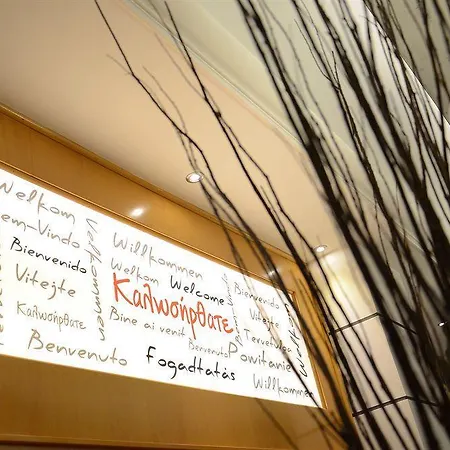 Welkom
Bem-Vindo
Willkommen
Bienvenido
Welkom Welcome
Bienvenido
Vitejte
Καλωσήρθατε
Vitejte
Καλωσήρθατε
Bine ai venit
Tervetuloa
Benvenuto
Powitanie
Benvenuto
Fogadtatás
Willkommen